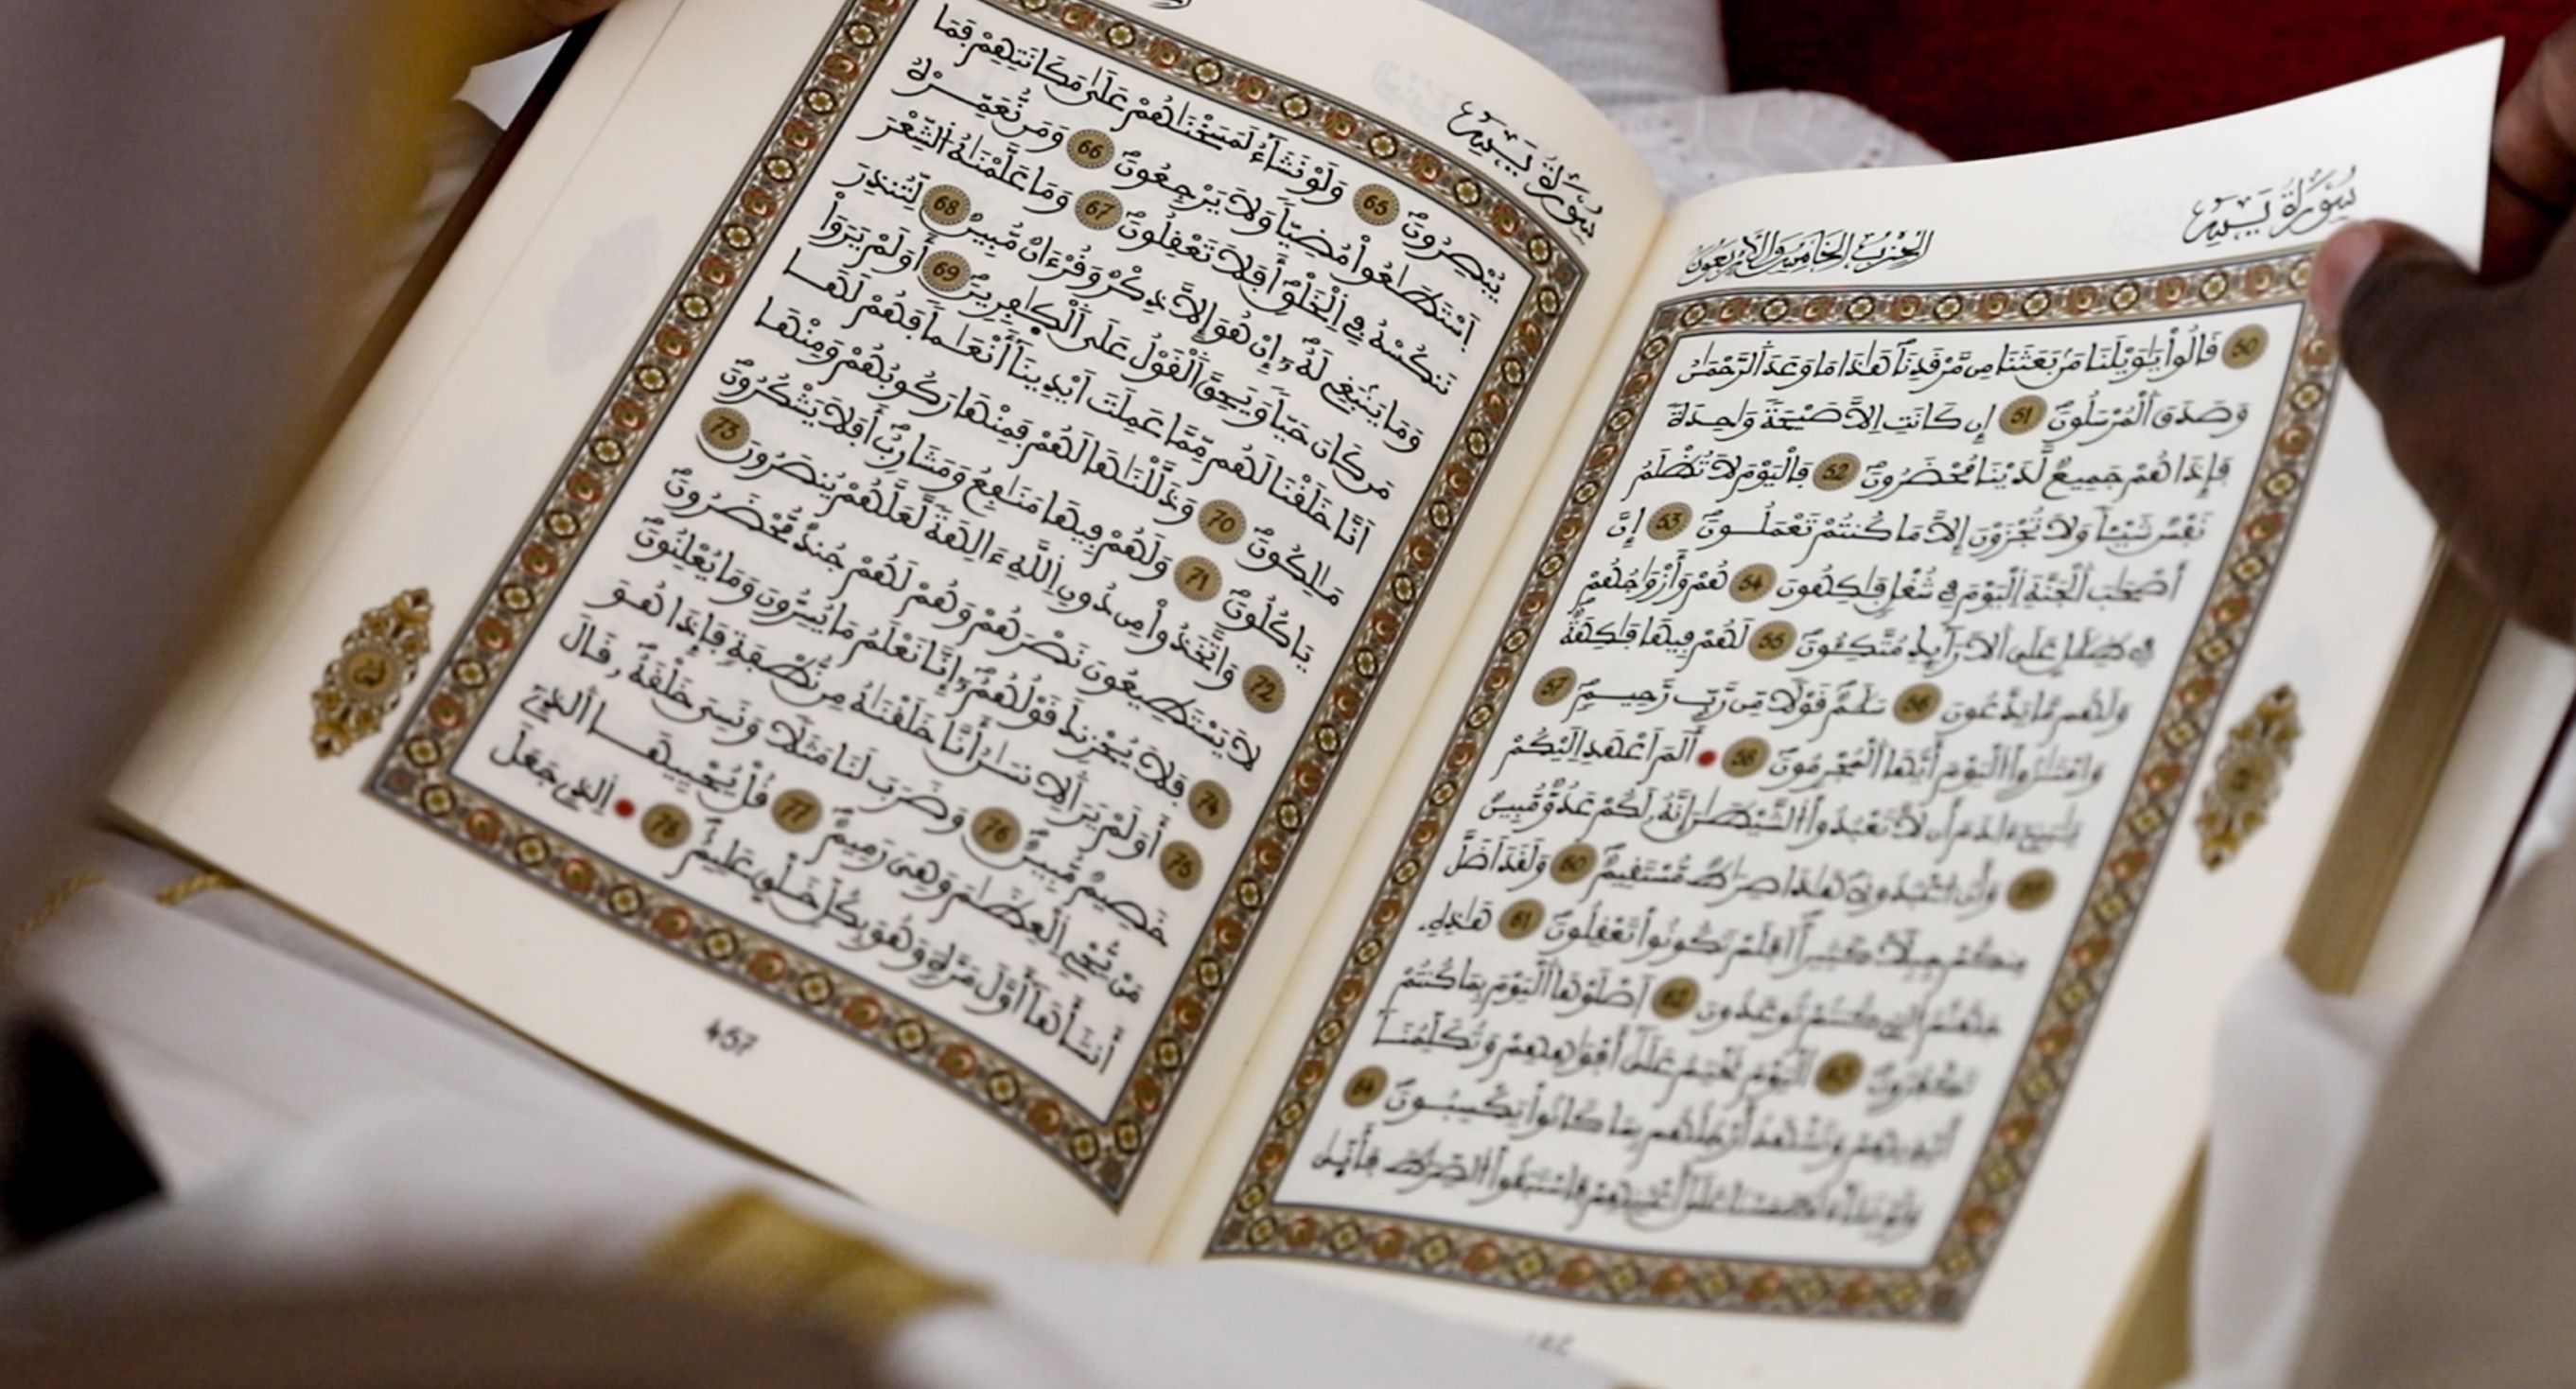 سورة يس
الحزب الخامس والأربعون
50 قالوا يويلنا من بعثنا من مرقدنا هذا ما وعد الرحمن
وصدق المرسلون 51 إن كانت إلا صيحة وحدة
فإذا هم جميع لدينا محضرون 52 فاليوم لا تظلم
نفس شيئا ولا تجزون إلا ما كنتم تعملون 53 إن
أصحب الجنة اليوم في شغل فكهون 54 هم وأزواجهم
في ظلل على الارآيك متكئون 55 لهم فيها فكهة
ولهم ما يدعون 56 سلم قولا من رب رحيم 57
وامتزوا اليوم أيها المجرمون 58 ألم اعهد اليكم
يبني ءادم أن لا تعبدوا الشيطن إنه لكم عدو مبين
59 وأن اعبدوني هذا صرط مستقيم 60 ولقد اضل
منكم جبلا كثيرا افلم تكونوا تعقلون 61 هذه
جهنم التي كنتم توعدون 62 اصلوها اليوم بما كنتم
تكفرون 63 اليوم نختم على أفوههم وتكلمنا
أيديهم وتشهد أرجلهم بما كانوا يكسبون 64
ولو نشآء لطمسنا على أعينهم فاستبقوا الصرط فأنى
سورة يس
يبصرون 65 ولو نشآء لمسخناهم على مكانتهم فما
استطاعوا مضيا ولا يرجعون 66 ومن نعمره
ننكسه في الخلق أفلا تعقلون 67 وما علمناه الشعر
وما ينبغي له إن هو إلا ذكر وقرءان مبين 68 لتنذر
من كان حيا ويحق القول على الكافرين 69 أولم يروا
انا خلقنا لهم مما عملت ايدينآ أنعاما فهم لها
مالكون 70 وذللناها لهم فمنها ركوبهم ومنها
ياكلون 71 ولهم فيها منافع ومشارب أفلا يشكرون
72 واتخذوا من دون الله ءالهة لعلهم ينصرون 73
لا يستطيعون نصرهم وهم لهم جند محضرون
74 فلا يحزنك قولهم إنا نعلم ما يسرون وما يعلنون
75 أولم ير الانسان أنا خلقناه من نطفة فإذا هو
خصيم مبين 76 وضرب لنا مثلا ونسي خلقه قال
من يحي العظام وهي رميم 77 قل يحييها الذي
أنشأهآ أول مرة وهو بكل خلق عليم 78 الذي جعل
457